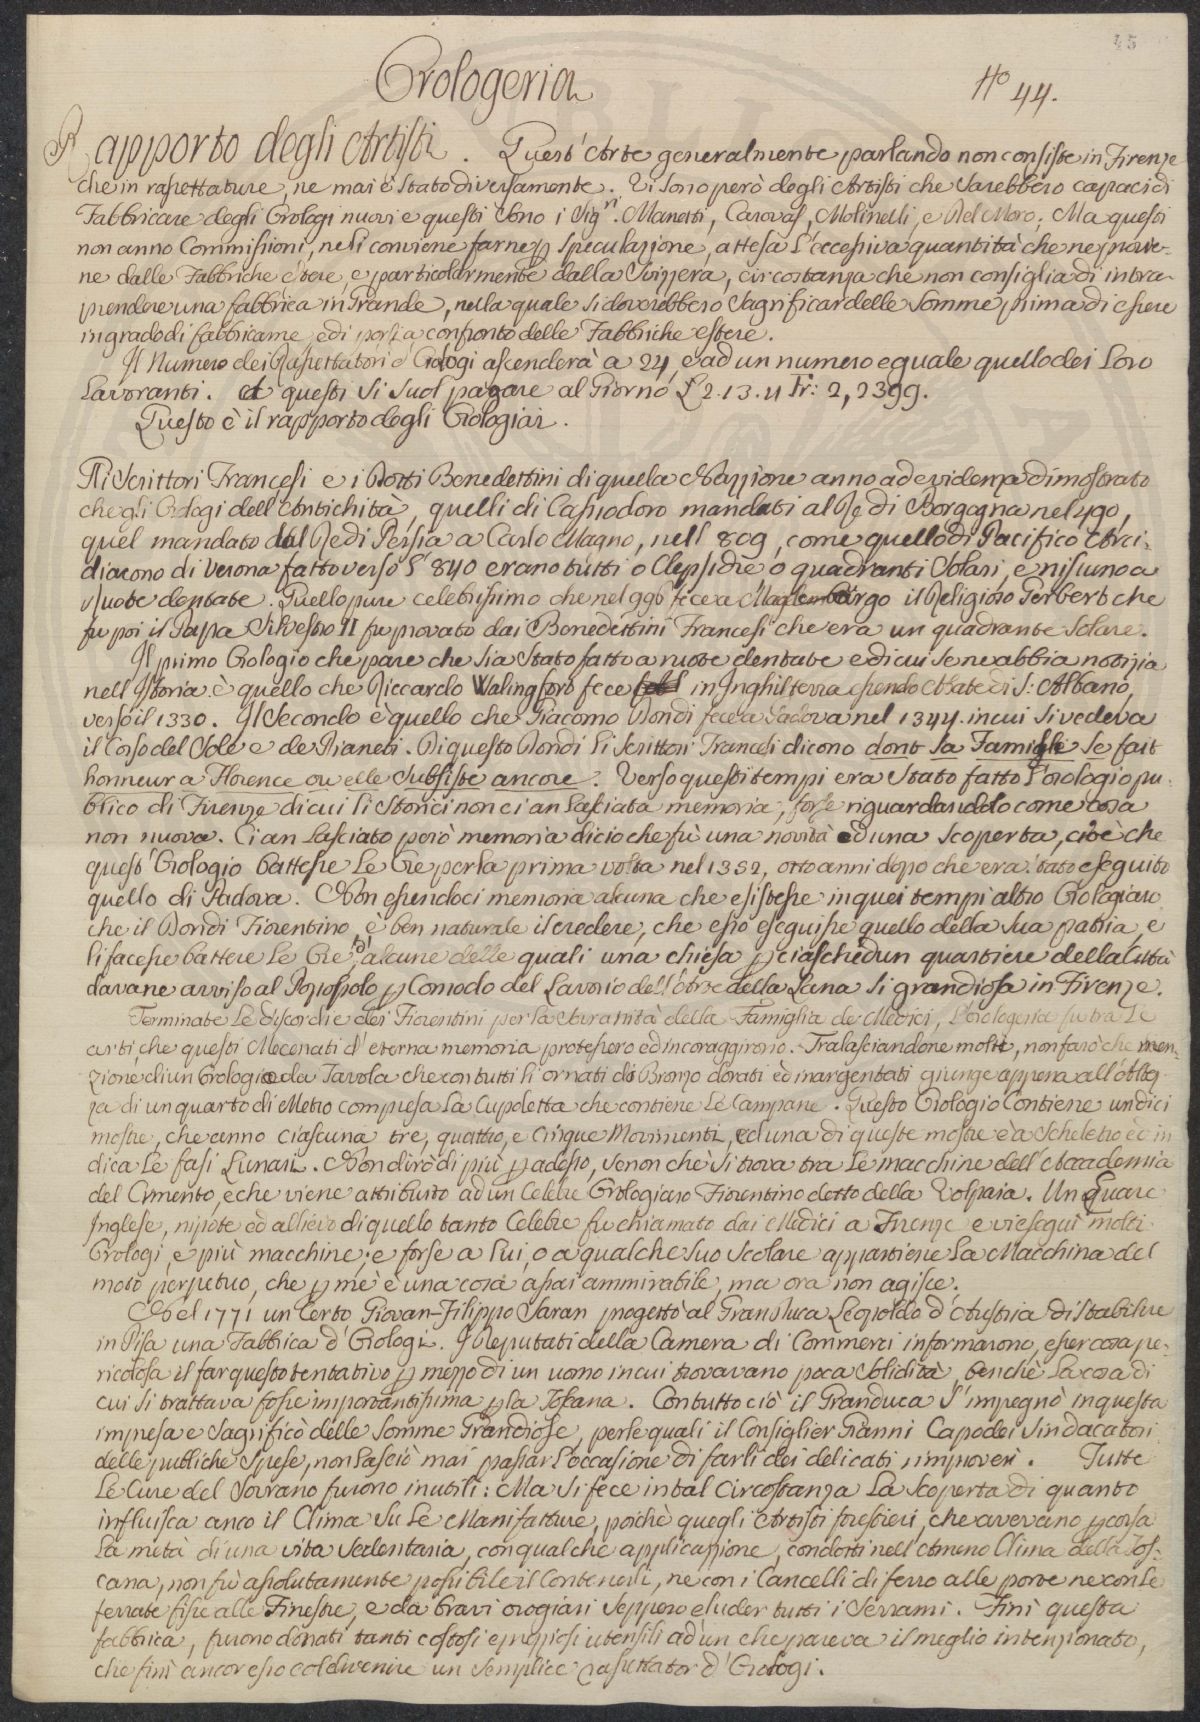 45
Orologeria
No 44.
Rapporto degli Artisti. Quest'Arte generalmente parlando non consiste in Firenze
che in rasettature, ne mai è stato diversamente. Vi sono però degli Artisti che sarebbero capaci di
Fabbricare degli Orologi nuovi e questi sono i Sigri. Manetti, Carovas, Molinelli, e Del Moro. Ma questi
non anno Commissioni, ne li conviene farne p speculazione, attesa l'eccessiva quantità che ne provie-
ne dalle Fabbriche estere, e particolarmente dalla Svizzera, circostanza che non consiglia di intra-
prendere una fabbrica in Grande, nella quale si doverebbero sagrificar delle somme prima di essere
in grado di fabbricarne, e di porsi a confronto delle Fabbriche estere.
Il Numero dei Rasettatori d'Orologi ascenderà a 24, e ad un numero eguale quello dei Loro
Lavoranti. A questi si suol pagare al Giorno £ 2.13.4 Fr: 2,2399.
Questo è il rapporto degli Orologiai.
Gli Scrittori Francesi e i Dotti Benedettini di quella Nazzione anno ad evidenza dimostrato
che gli Orologi dell'Antichità, quelli di Cassiodoro mandati al Re di Borgogna nel 490,
quel mandato dal Re di Persia a Carlo Magno, nell' 809, come quello di Pacifico Arci-
diacono di Verona fatto verso l' 840 erano tutti o Clepsidre o quadranti Solari, e nissuno a
Ruote dentate. Quello pure celebrissimo che nel 996 fece a Magdemburgo il Religioso Gerbert che
fu poi il Papa Silvestro II fu provato dai Benedettini Francesi che era un quadrante Solare.
Il primo Orologio che pare che sia stato fatto a ruote dentate e di cui se ne abbia notizia
nell'Istoria è quello che Riccardo Walingford fece in Inghilterra essendo Abate di S: Albano,
verso il 1330. Il Secondo è quello che Giacomo Dondi fece a Padova nel 1344. in cui si vedeva
il Corso del Sole e de Pianeti. Di questo Dondi li Scrittori Francesi dicono dont la Famiglie se fait
honneur a Florence ou elle Subsiste ancore. Verso questi tempi era stato fatto l'orologio pu-
blico di Firenze di cui li Storici non ci an lasciata memoria, forse riguardandolo come cosa
non nuova. Ci an lasciato però memoria di cio che fù una novità ed una scoperta, cioè che
quest'Orologio battesse Le Ore per la prima volta nel 1352, otto anni dopo che era stato eseguito
quello di Padova. Non essendoci memoria alcuna che esistesse in quei tempi altro Orologiaro
che il Dondi Fiorentino, è ben naturale il credere, che esso eseguisse quello della Sua patria, e
li facesse battere Le Ore, d'alcune delle quali una chiesa p ciaschedun quartiere della Città
davane avviso al Popolo p Comodo del Lavorio dell'Arte della Lana si grandiosa in Firenze.
Terminate Le discordie dei Fiorentini per la Sovranità della Famiglia de Medici, L'orologeria fu tra Le
arti, che questi Mecenati d'eterna memoria protessero ed incoraggirono. Tralasciandone molti, non farò che men-
zione di un Orologio da Tavola che con tutti li ornati di Bronzo dorati ed inargentati giunge appena all'Altez-
za di un quarto di Metro compresa La Cupoletta che contiene Le Campane. Questo Orologio Contiene undici
mostre, che anno ciascuna tre, quattro, e Cinque Movimenti, ed una di queste mostre è a Scheletro ed in-
dica Le fasi Lunari. Non dirò di più p adesso, se non che si trova tra Le macchine dell'Accademia
del Cimento, e che viene attribuito ad un Celebre Orologiaro Fiorentino detto della Volpaia. Un Quare
Inglese, nipote ed allievo di quello tanto Celebre fu chiamato dai Medici a Firenze e vi eseguì molti
Orologi, e più macchine; e forse a Lui, o a qualche suo Scolare appartiene La Macchina del
moto perpetuo, che p me è una cosa assai ammirabile, ma ora non agisce.
Nel 1771 un Certo Giovan-Filippo Saran progettò al Granduca Leopoldo d'Austria di stabilire
in Pisa una Fabbrica d'Orologi. I Deputati della Camera di Commerci informarono, esser cosa pe-
ricolosa il far questo tentativo p mezzo di un uomo in cui trovavano poca Solidità, benchè La cosa di
cui si trattava fosse importantissima p la Toscana. Contuttociò il Granduca s'impegnò in questa
impresa e sagrificò delle somme Grandiose, per le quali il Consiglier Gianni Capo dei Sindacatori
delle publiche Spese, non Lasciò mai passar L'occasione di farli dei delicati rimproveri. Tutte
Le Cure del Sovrano furono inutili: Ma si fece in tal Circostanza La Scoperta di quanto
influisca anco il Clima su Le Manifatture, poichè quegli Artisti forestieri, che averano p corsa
La metà di una vita sedentaria, con qualche applicazzione, condotti nell'Ameno Clima della Tos-
cana, non fù assolutamente possibile il Contenerli, ne con i Cancelli di ferro alle porte ne con Le
ferrate fisse alle Finestre, e da bravi orogiari seppero eluder tutti i Serrami. Finì questa
fabbrica, furono donati tanti costosi e preziosi utensili ad un che pareva il meglio intenzionato,
che finì ancor esso col divenire un semplice rasettator d'Orologi.